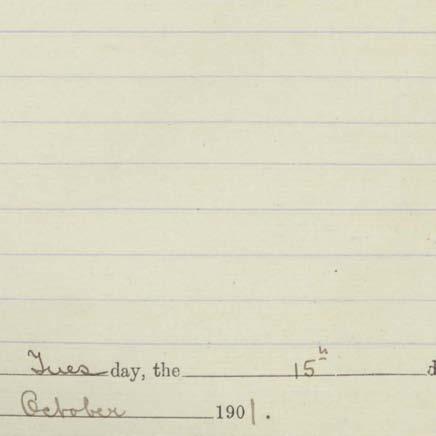 Tues day, the 15th d
October 1901.